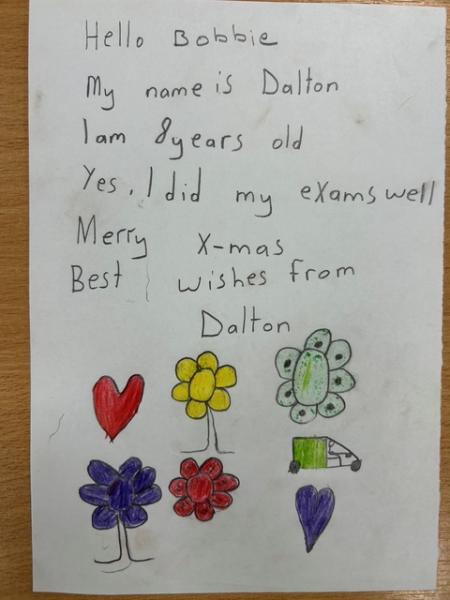 Hello Bobbie
My name is Dalton
I am 8 years old
Yes, I did my exams well
Merry X-mas
Best wishes from
Dalton